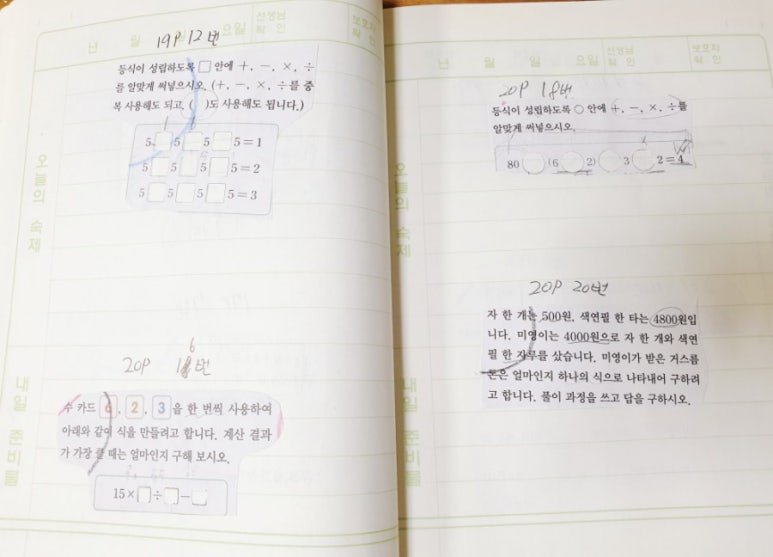 년 월 요일 선생님 확인 보호자 확인
19P 12번
등식이 성립하도록 □ 안에 +, -, ×, ÷
를 알맞게 써넣으시오. (+, -, ×, ÷를 중
복 사용해도 되고, ( )도 사용해도 됩니다.)
5 □ 5 □ 5 □ 5 = 1
5 □ 5 □ 5 □ 5 = 2
5 □ 5 □ 5 □ 5 = 3
오늘의 숙제
20P 16번
수 카드 6, 2, 3 을 한 번씩 사용하여
아래와 같이 식을 만들려고 합니다. 계산 결과
가 가장 클 때는 얼마인지 구해 보시오.
15 × □ ÷ □ - □
내일 준비물
년 월 일 요일 선생님 확인 보호자 확인
20P 18번
등식이 성립하도록 ○ 안에 +, -, ×, ÷를
알맞게 써넣으시오.
80 ○ (6 ○ 2) ○ 3 ○ 2 = 4
오늘의 숙제
20P 20번
자 한 개는 500원, 색연필 한 타는 4800원입
니다. 미영이는 4000원으로 자 한 개와 색연
필 한 자루를 샀습니다. 미영이가 받은 거스름
돈은 얼마인지 하나의 식으로 나타내어 구하려
고 합니다. 풀이 과정을 쓰고 답을 구하시오.
내일 준비물